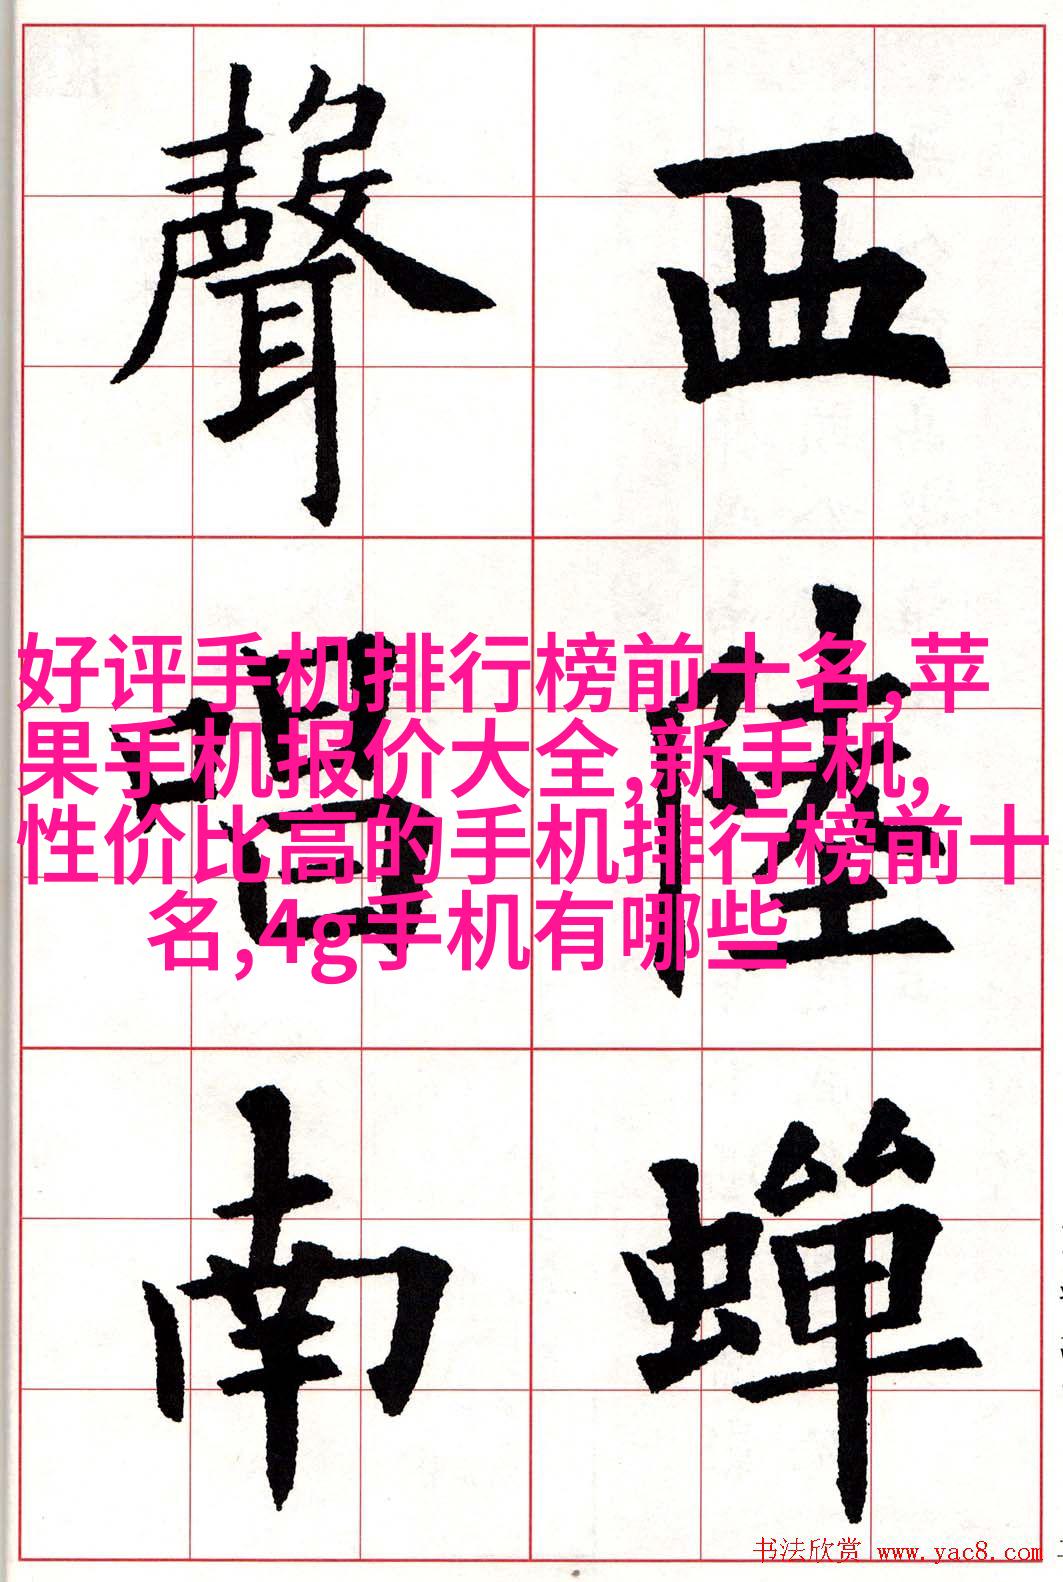 西陸蟬
聲唱南
好评手机排行榜前十名,苹
果手机报价大全,新手机,
性价比高的手机排行榜前十
名,4g手机有哪些
书法欣赏 www.yac8.com